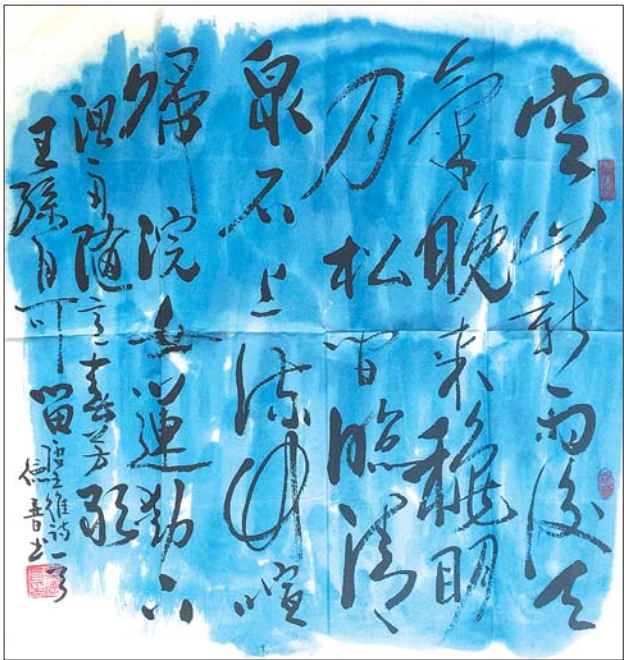 空山新雨後天
氣晚來穐明
月松間照清
泉石上流竹喧
歸浣女蓮動下
漁舟隨意春芳歇
王孫自可留
唐王維詩一首
書